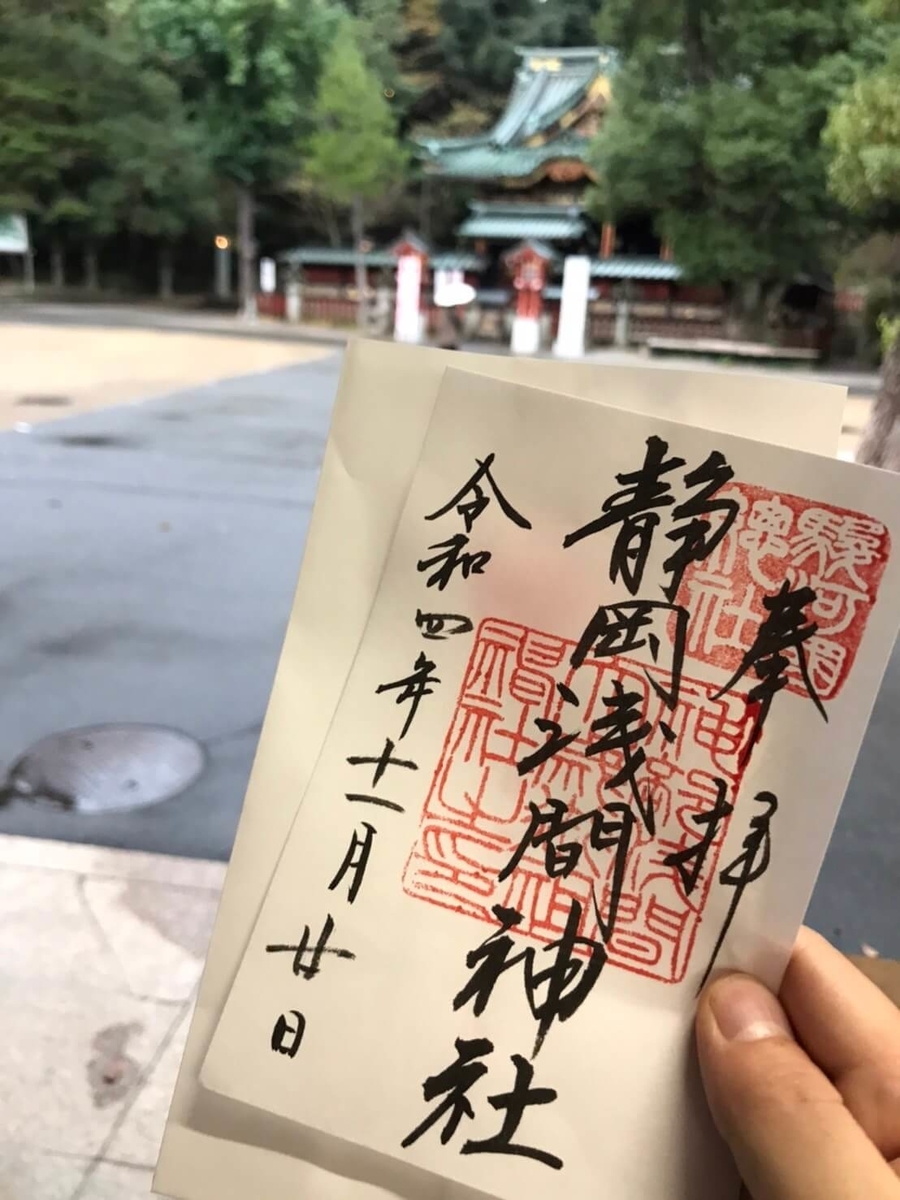 奉拝
駿河国
總社
静岡浅間神社
令和四年十一月廿日